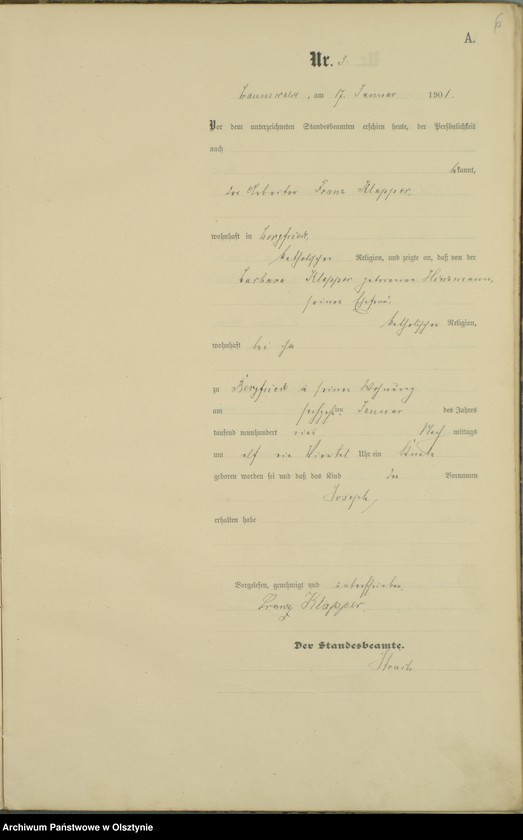 6
A.
Nr. 3.
am 17. Januar 1901.
Vor dem unterzeichneten Standesbeamten erschien heute, der Persönlichkeit
nach
bekannt,
der Arbeiter Franz Klapper,
wohnhaft in Bergfriede,
katholischer Religion, und zeigte an, daß von der
Barbara Klapper geborenen Hinzmann,
seiner Ehefrau,
katholischer Religion,
wohnhaft bei ihm
zu Bergfriede in seiner Wohnung
am sechzehnten Januar des Jahres
tausend neunhundert eins Nachmittags
um elf ein Viertel Uhr ein Knabe
geboren worden sei und daß das Kind den Vornamen
Joseph,
erhalten habe
Vorgelesen, genehmigt und unterschrieben.
Franz Klapper
Der Standesbeamte.
Archiwum Państwowe w Olsztynie